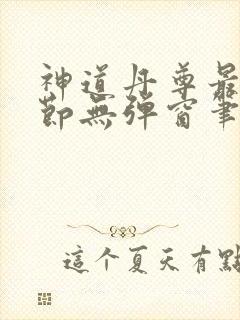 神道丹尊最
節無彈窗筆
這个夏天有點